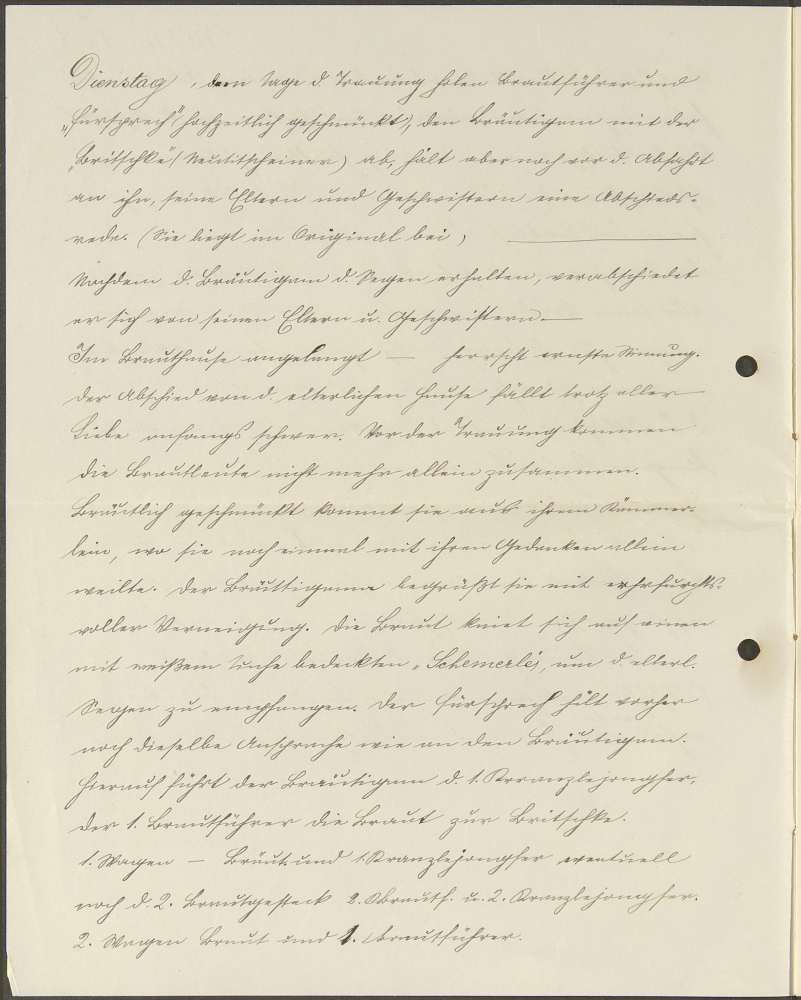 Dienstag, dem Tage d. Trauung holen Brautführer und
„Fürsprech" (hochzeitlich geschmückt), den Bräutigam mit der
„Britschke" (Neutitscheiner) ab, hält aber noch vor d. Abfahrt
an ihn, seine Eltern und Geschwistern eine Abschieds-
rede. (Sie liegt im Original bei)
Nachdem d. Bräutigam d. Segen erhalten, verabschiedet
er sich von seinen Eltern u. Geschwistern. —
Im Brauthause angelangt — herrscht ernste Stimmung.
Der Abschied von d. elterlichen Hause fällt trotz aller
Liebe anfangs schwer. Vor der Trauung kommen
die Brautleute nicht mehr allein zusammen.
Bräutlich geschmückt kommt sie aus ihrem Kämmer-
lein, wo sie noch einmal mit ihren Gedanken allein
weilte. Der Bräuttigamm begrüßt sie mit erhrfurchts-
voller Verneigung. Die Braut kniet sich auf einen
mit weißem Tuche bedeckten „Schemerle", um d. elterl.
Segen zu empfangen. Der Fürsprech hält vorher
noch dieselbe Ansprache wie an den Bräutigam.
Hierauf führt der Bräutigam d. 1. Kranzlejongfer,
der 1. Brautführer die Braut zur Britschke.
1. Wagen — Bräut. und 1. Kranzlejongfer eventuell
noch d. 2. Brautgesteck 2. Brautf. u. 2. Kranzlejongfer.
2. Wagen Braut und 1. Brautführer.